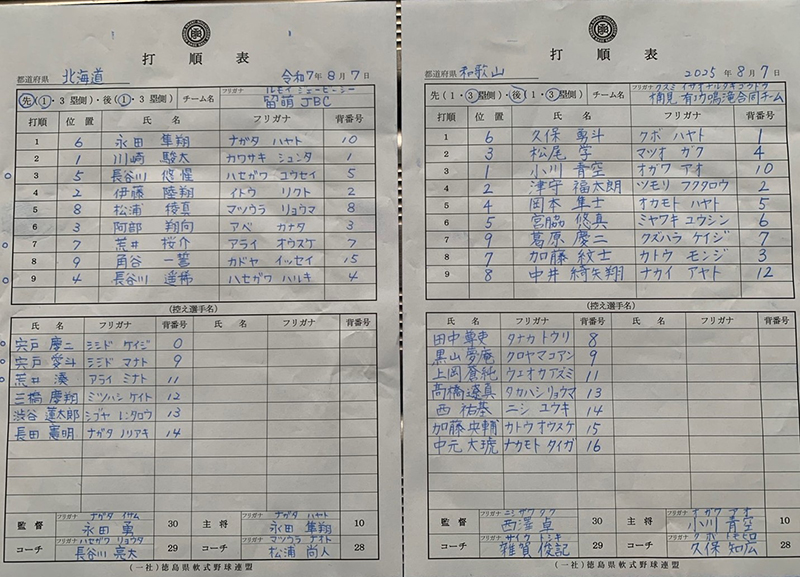 打順表
都道府県 北海道 令和7年8月7日
先(1・3塁側)・後(1・3塁側) チーム名 フリガナ ルモイ ジェービーシー
留萌 JBC
打順 位置 氏名 フリガナ 背番号
1 6 永田 隼翔 ナガタ ハヤト 10
2 1 川崎 駿太 カワサキ シュンタ 1
3 5 長谷川 悠惺 ハセガワ ユウセイ 5
4 2 伊藤 陸翔 イトウ リクト 2
5 8 松浦 稜真 マツウラ リョウマ 8
6 3 阿部 翔向 アベ カナタ 3
7 7 荒井 桜介 アライ オウスケ 7
8 9 角谷 一誓 カドヤ イッセイ 15
9 4 長谷川 遥稀 ハセガワ ハルキ 4
(控え選手名)
氏名 フリガナ 背番号 氏名 フリガナ 背番号
宍戸 慶二 シシド ケイジ 0
宍戸 愛斗 シシド マナト 9
荒井 湊 アライ ミナト 11
三橋 慶翔 ミツハシ ケイト 12
渋谷 蓮太郎 シブヤ レンタロウ 13
長田 憲明 ナガタ ノリアキ 14
監督 フリガナ ナガタ イサム 永田 勇 30 主将 フリガナ ナガタ ハヤト 永田 隼翔 10
コーチ フリガナ ハセガワ リョウタ 長谷川 亮太 29 コーチ フリガナ マツウラ ナオト 松浦 尚人 28
(一社)徳島県軟式野球連盟
打順表
都道府県 和歌山 2025年8月7日
先(1・3塁側)・後(1・3塁側) チーム名 フリガナ クスミ イサオナルタキゴウドウ
楠見 有功鳴滝合同チーム
打順 位置 氏名 フリガナ 背番号
1 6 久保 勇斗 クボ ハヤト 1
2 3 松尾 学 マツオ ガク 4
3 1 小川 青空 オガワ アオ 10
4 2 津守 福太朗 ツモリ フクタロウ 2
5 4 岡本 隼士 オカモト ハヤト 5
6 5 宮脇 悠真 ミヤワキ ユウシン 6
7 9 葛原 慶二 クズハラ ケイジ 7
8 7 加藤 紋士 カトウ モンジ 3
9 8 中井 綺矢翔 ナカイ アヤト 12
(控え選手名)
氏名 フリガナ 背番号 氏名 フリガナ 背番号
田中 タナカ トウリ 8
黒山 夢庵 クロヤマ コアン 9
上岡 蒼純 ウエオカ アズミ 11
髙橋 遼真 タカハシ リョウマ 13
西 祐基 ニシ ユウキ 14
加藤 央輔 カトウ オウスケ 15
中元 大琥 ナカモト タイガ 16
監督 フリガナ ニシザワ タク 西澤 卓 30 主将 フリガナ オガワ アオ 小川 青空 10
コーチ フリガナ サイカ トシキ 雑賀 俊記 29 コーチ フリガナ クボ トモヒロ 久保 知広 28
(一社)徳島県軟式野球連盟